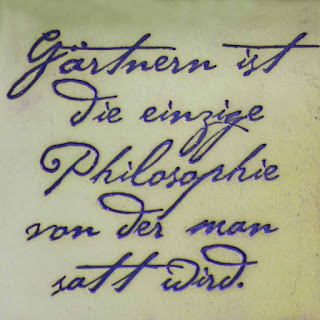 Gärtnern ist
die einzige
Philosophie
von der man
satt wird.